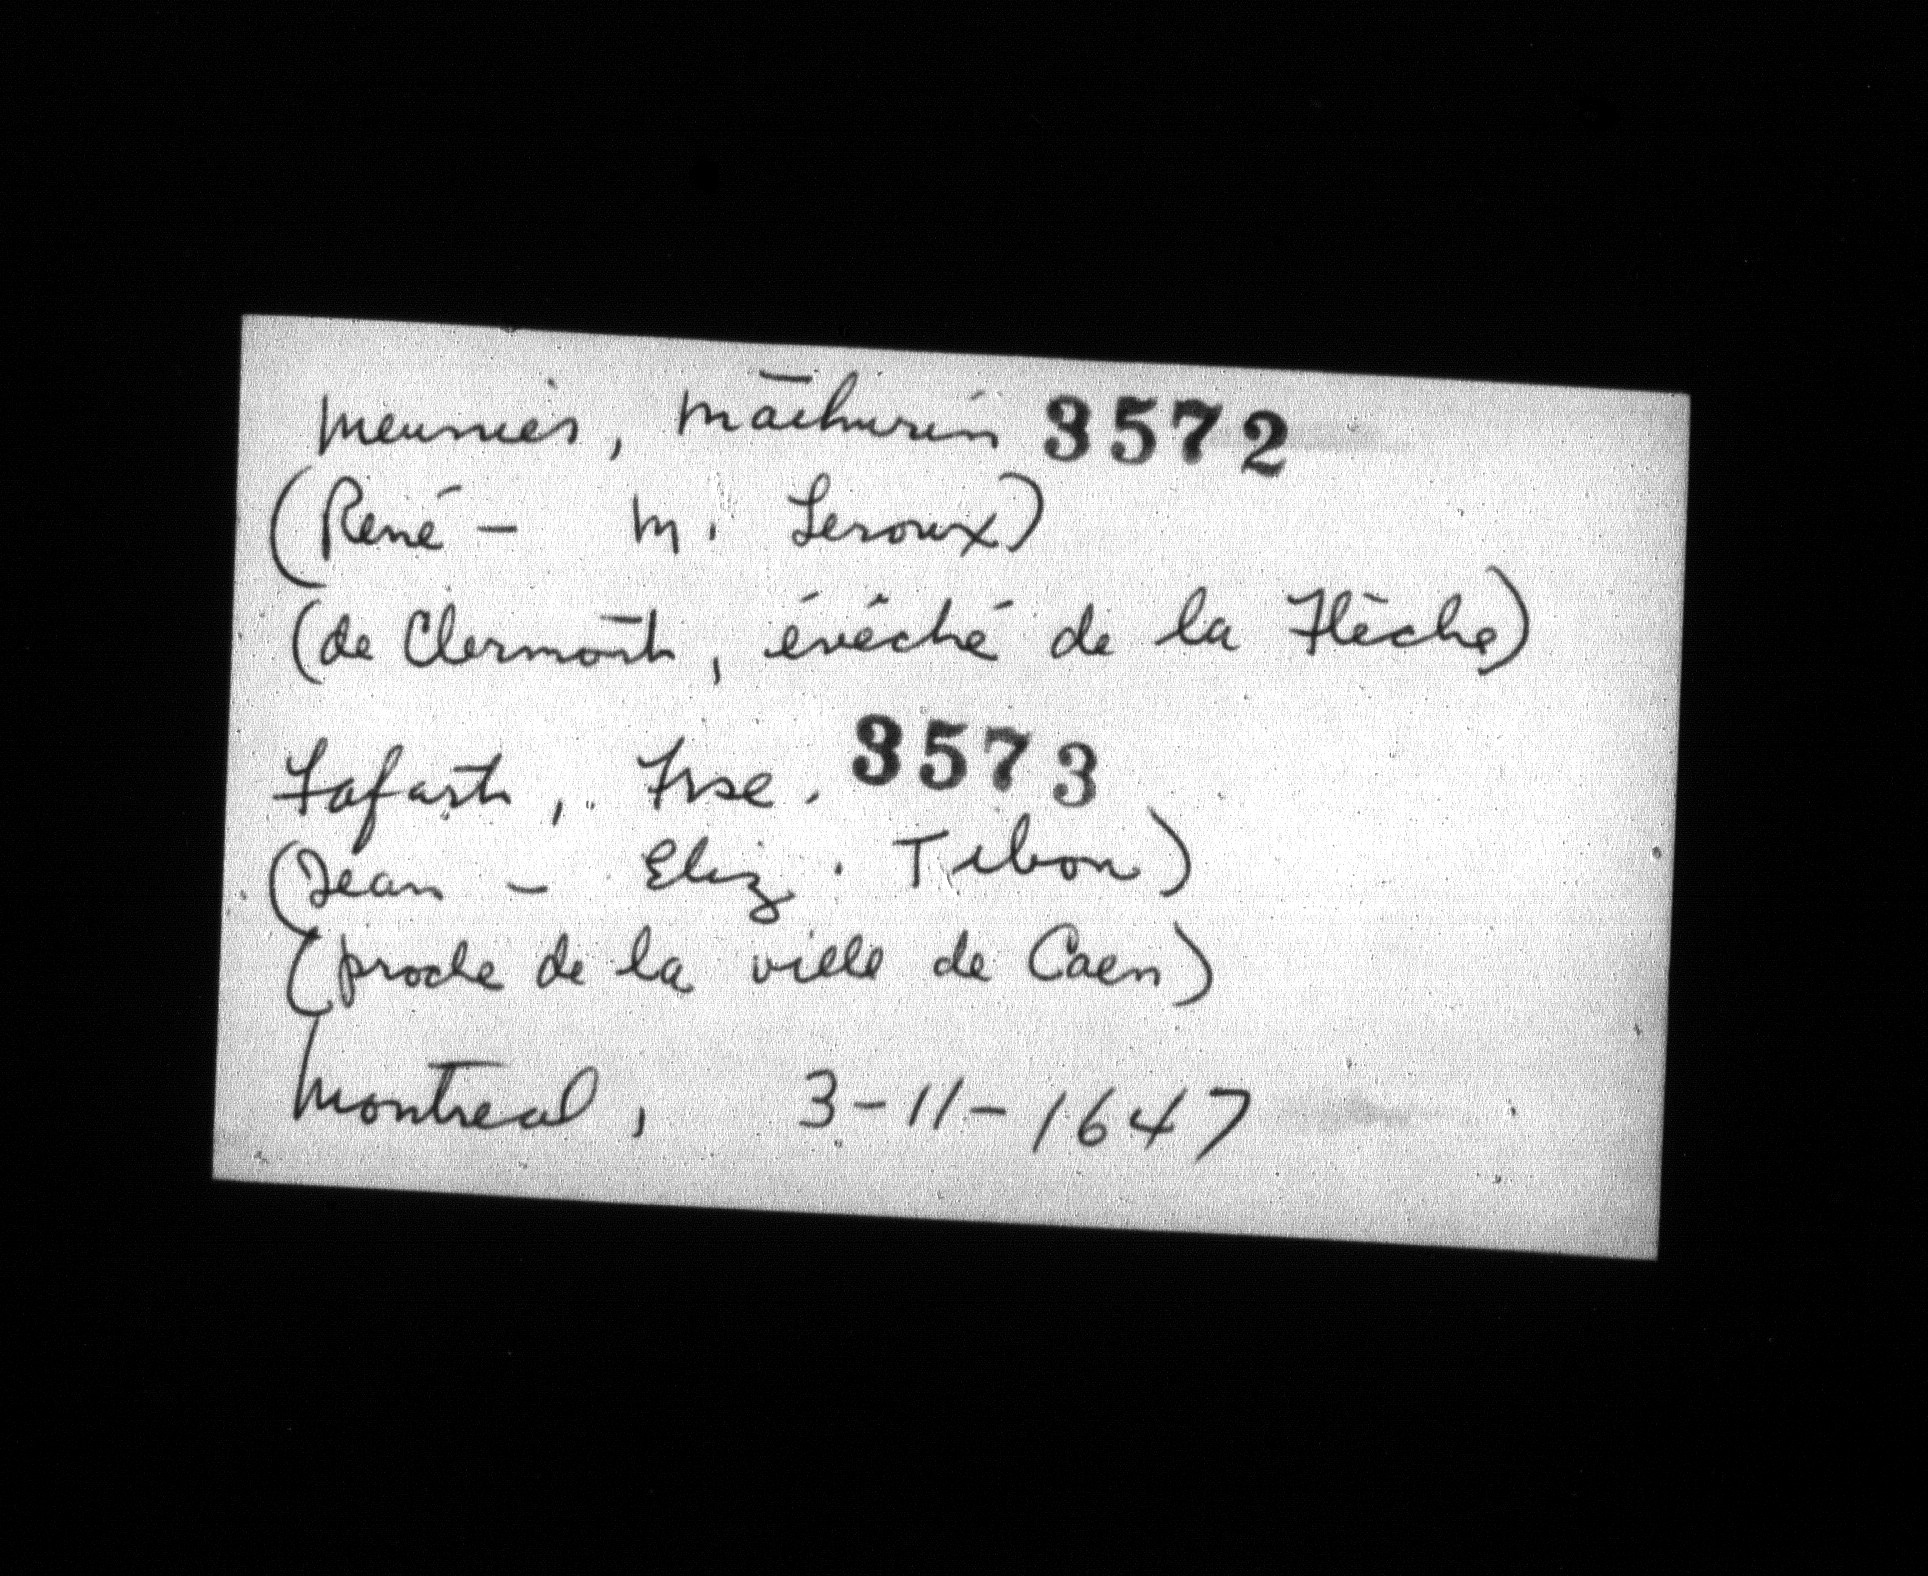 Meunier, Mathurin 3572
(René - M. Leroux)
(de Clermont, évêché de la Flèche)
Fafart, Frse. 3573
(Jean - Eliz. Tibon)
(proche de la ville de Caen)
Montreal, 3-11-1647